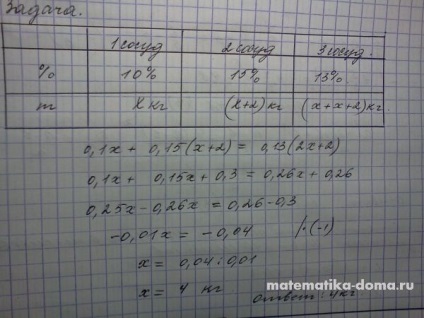 Задача.
1 сосуд 2 сосуд 3 сосуд.
% 10% 15% 13%
m x кг (x+2) кг (x+x+2) кг.
0,1x + 0,15(x+2) = 0,13(2x+2)
0,1x + 0,15x + 0,3 = 0,26x + 0,26
0,25x - 0,26x = 0,26 - 0,3
-0,01x = -0,04 /·(-1)
x = 0,04 : 0,01
x = 4 кг
ответ: 4 кг
matematika-doma.ru